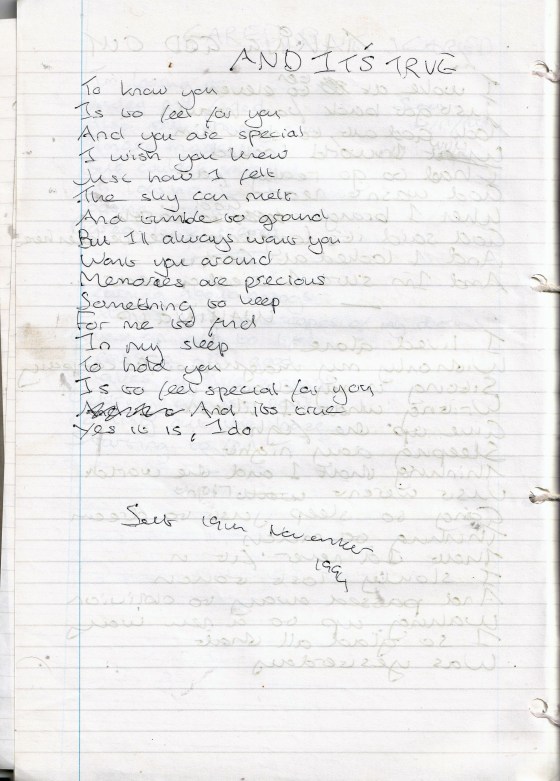 AND IT'S TRUE
To know you
Is to feel for you
And you are special
I wish you knew
Just how I felt
The sky can melt
And tumble to ground
But I'll always want you
Want you around
Memories are precious
Something to keep
For me to find
In my sleep
To hold you
Is to feel special for you
And its true
Yes it is, I do
19th November
1994